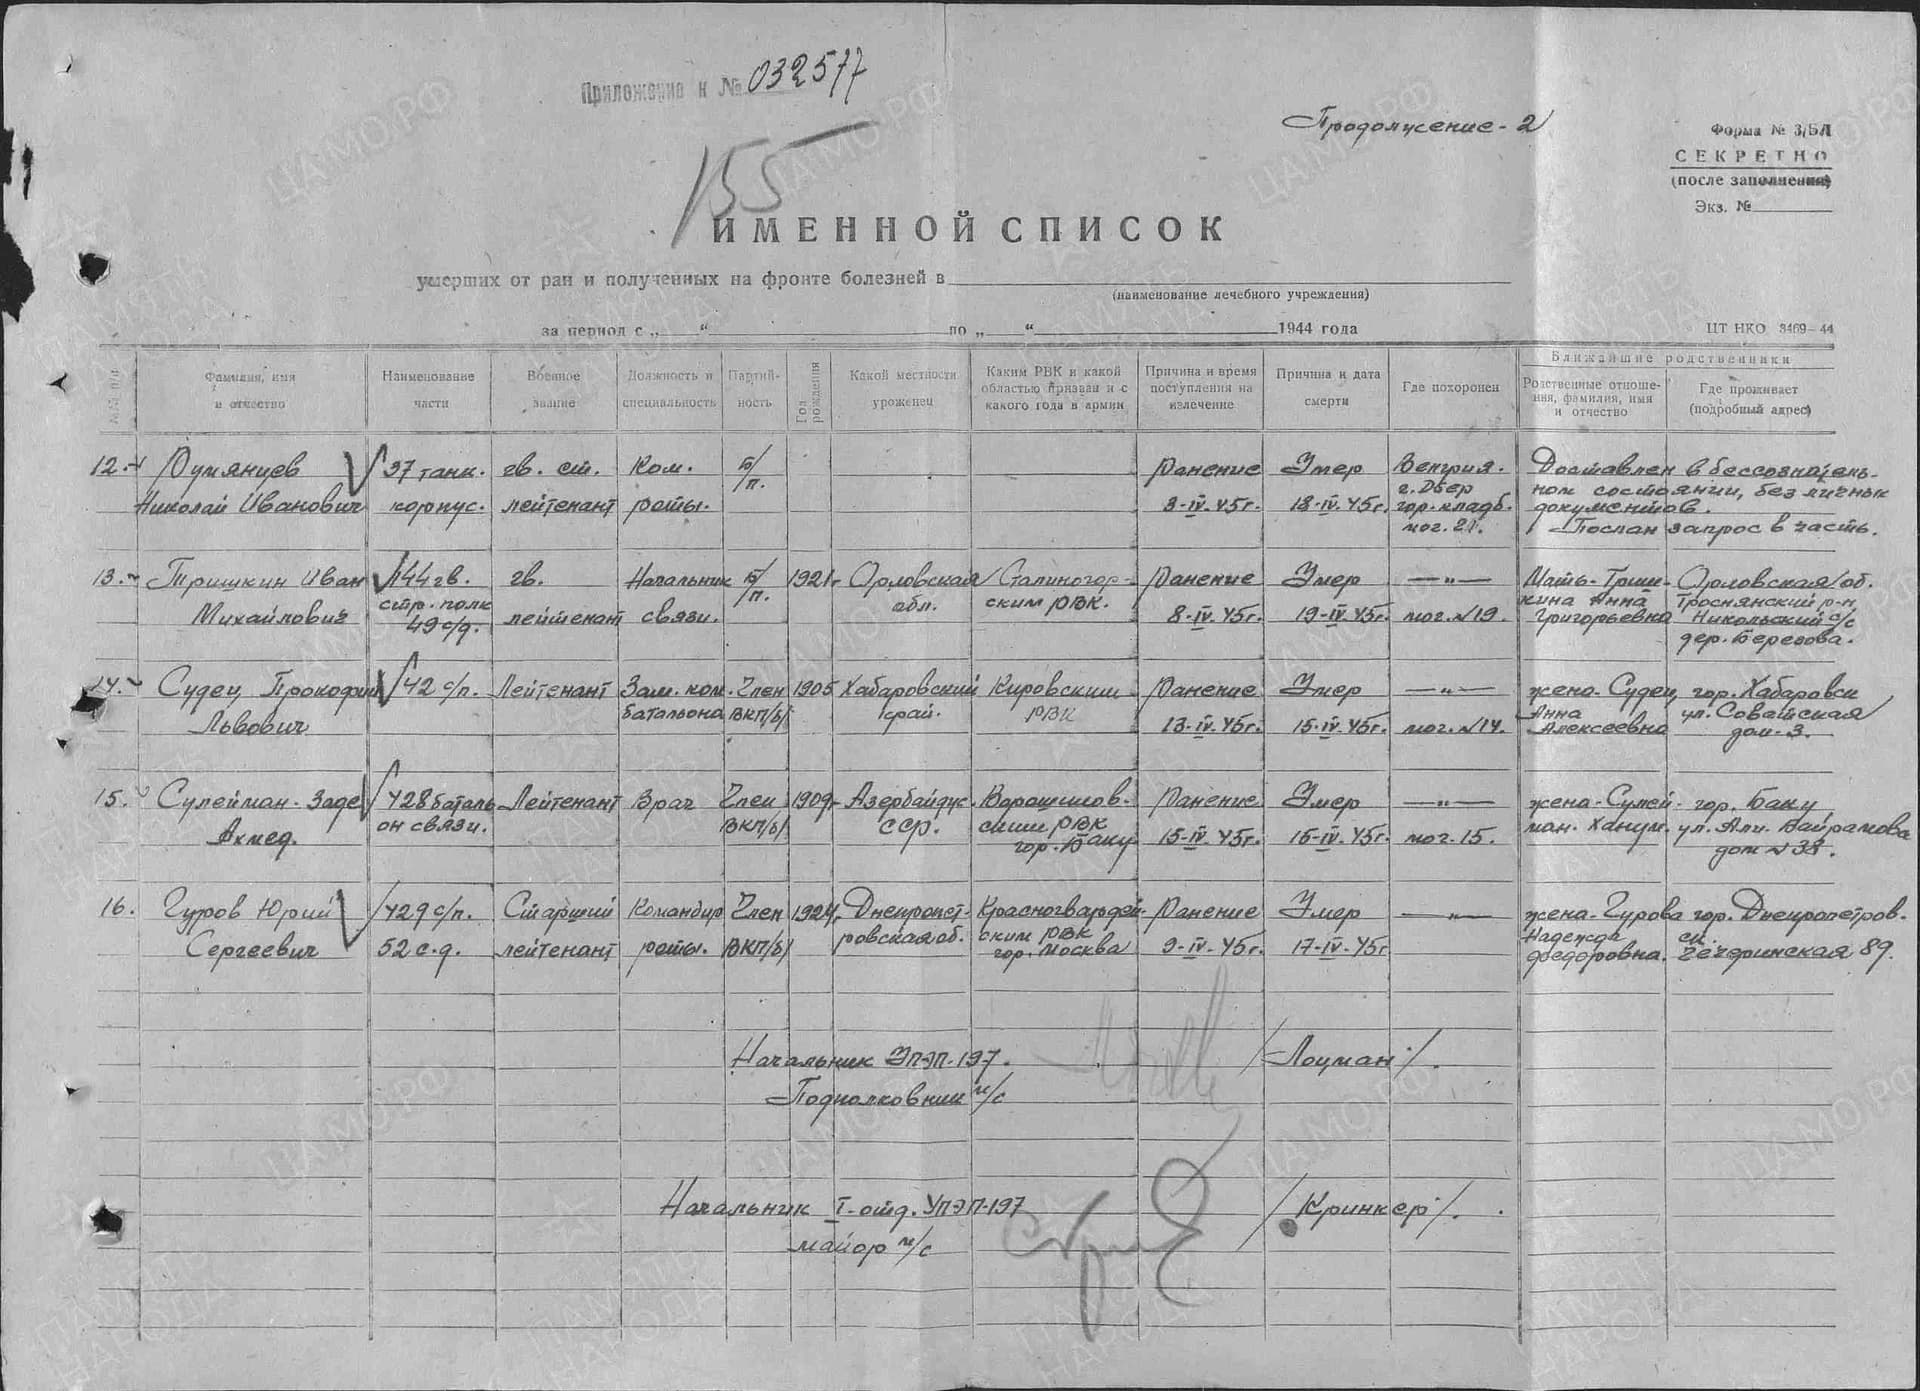 Приложение к № 032577
Продолжение - 2
155
Форма № 3/БЛ
СЕКРЕТНО
(после заполнения)
Экз. №
ИМЕННОЙ СПИСОК
умерших от ран и полученных на фронте болезней в
(наименование лечебного учреждения)
за период с „ “ по „ “ 1944 года
ЦТ НКО 3469-44
Ближайшие родственники
№№ п/п
Фамилия, имя и отчество
Наименование части
Военное звание
Должность и специальность
Партий-ность
Год рождения
Какой местности уроженец
Каким РВК и какой областью призван и с какого года в армии
Причина и время поступления на излечение
Причина и дата смерти
Где похоронен
Родственные отноше-ния, фамилия, имя и отчество
Где проживает (подробный адрес)
12. Румянцев Николай Иванович
37 танк. корпус.
гв. ст. лейтенант
Ком. роты.
б/п.
Ранение 8-IV-45г.
Умер 18-IV-45г.
Венгрия. г. Дьер гор. кладб. мог. 21.
Доставлен в бессознатель-
ном состоянии, без личных
документов.
Послан запрос в часть.
13. Тришкин Иван Михайлович
144 гв. стр. полк 49 с/д.
гв. лейтенант
Начальник связи.
б/п.
1921г
Орловская обл.
Сталиногор-ским РВК.
Ранение 8-IV-45г.
Умер 19-IV-45г.
—"— мог. №19.
Мать-Триш-кина Анна Григорьевна
Орловская об. Троснянский р-н Никольский с/с дер. Березова.
14. Судец Прокофий Львович
42 с/п.
Лейтенант
Зам. ком. батальона
Член ВКП/б/
1905
Хабаровский край.
Кировским РВК
Ранение 13-IV-45г.
Умер 15-IV-45г.
—"— мог. №14.
жена-Судец Анна Алексеевна
гор. Хабаровск ул. Советская дом-3.
15. Сулейман-Заде Ахмед.
428 баталь-он связи.
Лейтенант
Врач
Член ВКП/б/
1909г
Азербайдж. ССР.
Ворошилов-ским РВК гор. Баку
Ранение 15-IV-45г.
Умер 16-IV-45г.
—"— мог. 15.
жена-Сулей-ман. Ханум.
гор. Баку ул. Али. Байрамова дом №38.
16. Гуров Юрий Сергеевич
429 с/п. 52 с.д.
Старший лейтенант
Командир роты.
Член ВКП/б/
1924г
Днепропет-ровская об.
Красногвардей-ским РВК гор. Москва
Ранение 9-IV-45г.
Умер 17-IV-45г
—"—
жена-Гурова Надежда Федоровна.
гор. Днепропетров-ск. Чечеринская 89.
Начальник УПЭП-197. /Лоцман/.
Подполковник м/с
Начальник I-отд. УПЭП-197 /Кринкер/.
майор м/с
ЦАМО.РФ
ПАМЯТЬ НАРОДА